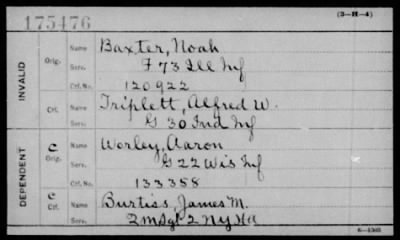 175476
(3-H-4)
INVALID
Orig.
Name Baxter, Noah
Serv. F 73 Ill Inf
Ctf. No. 120922
Ctf.
Name Triplett, Alfred W.
Serv. G 30 Ind Inf
DEPENDENT
C
Orig.
Name Worley, Aaron
Serv. G 22 Wis Inf
Ctf. No. 133358
C
Ctf.
Name Burtiss, James M.
Serv. 2 NY HA